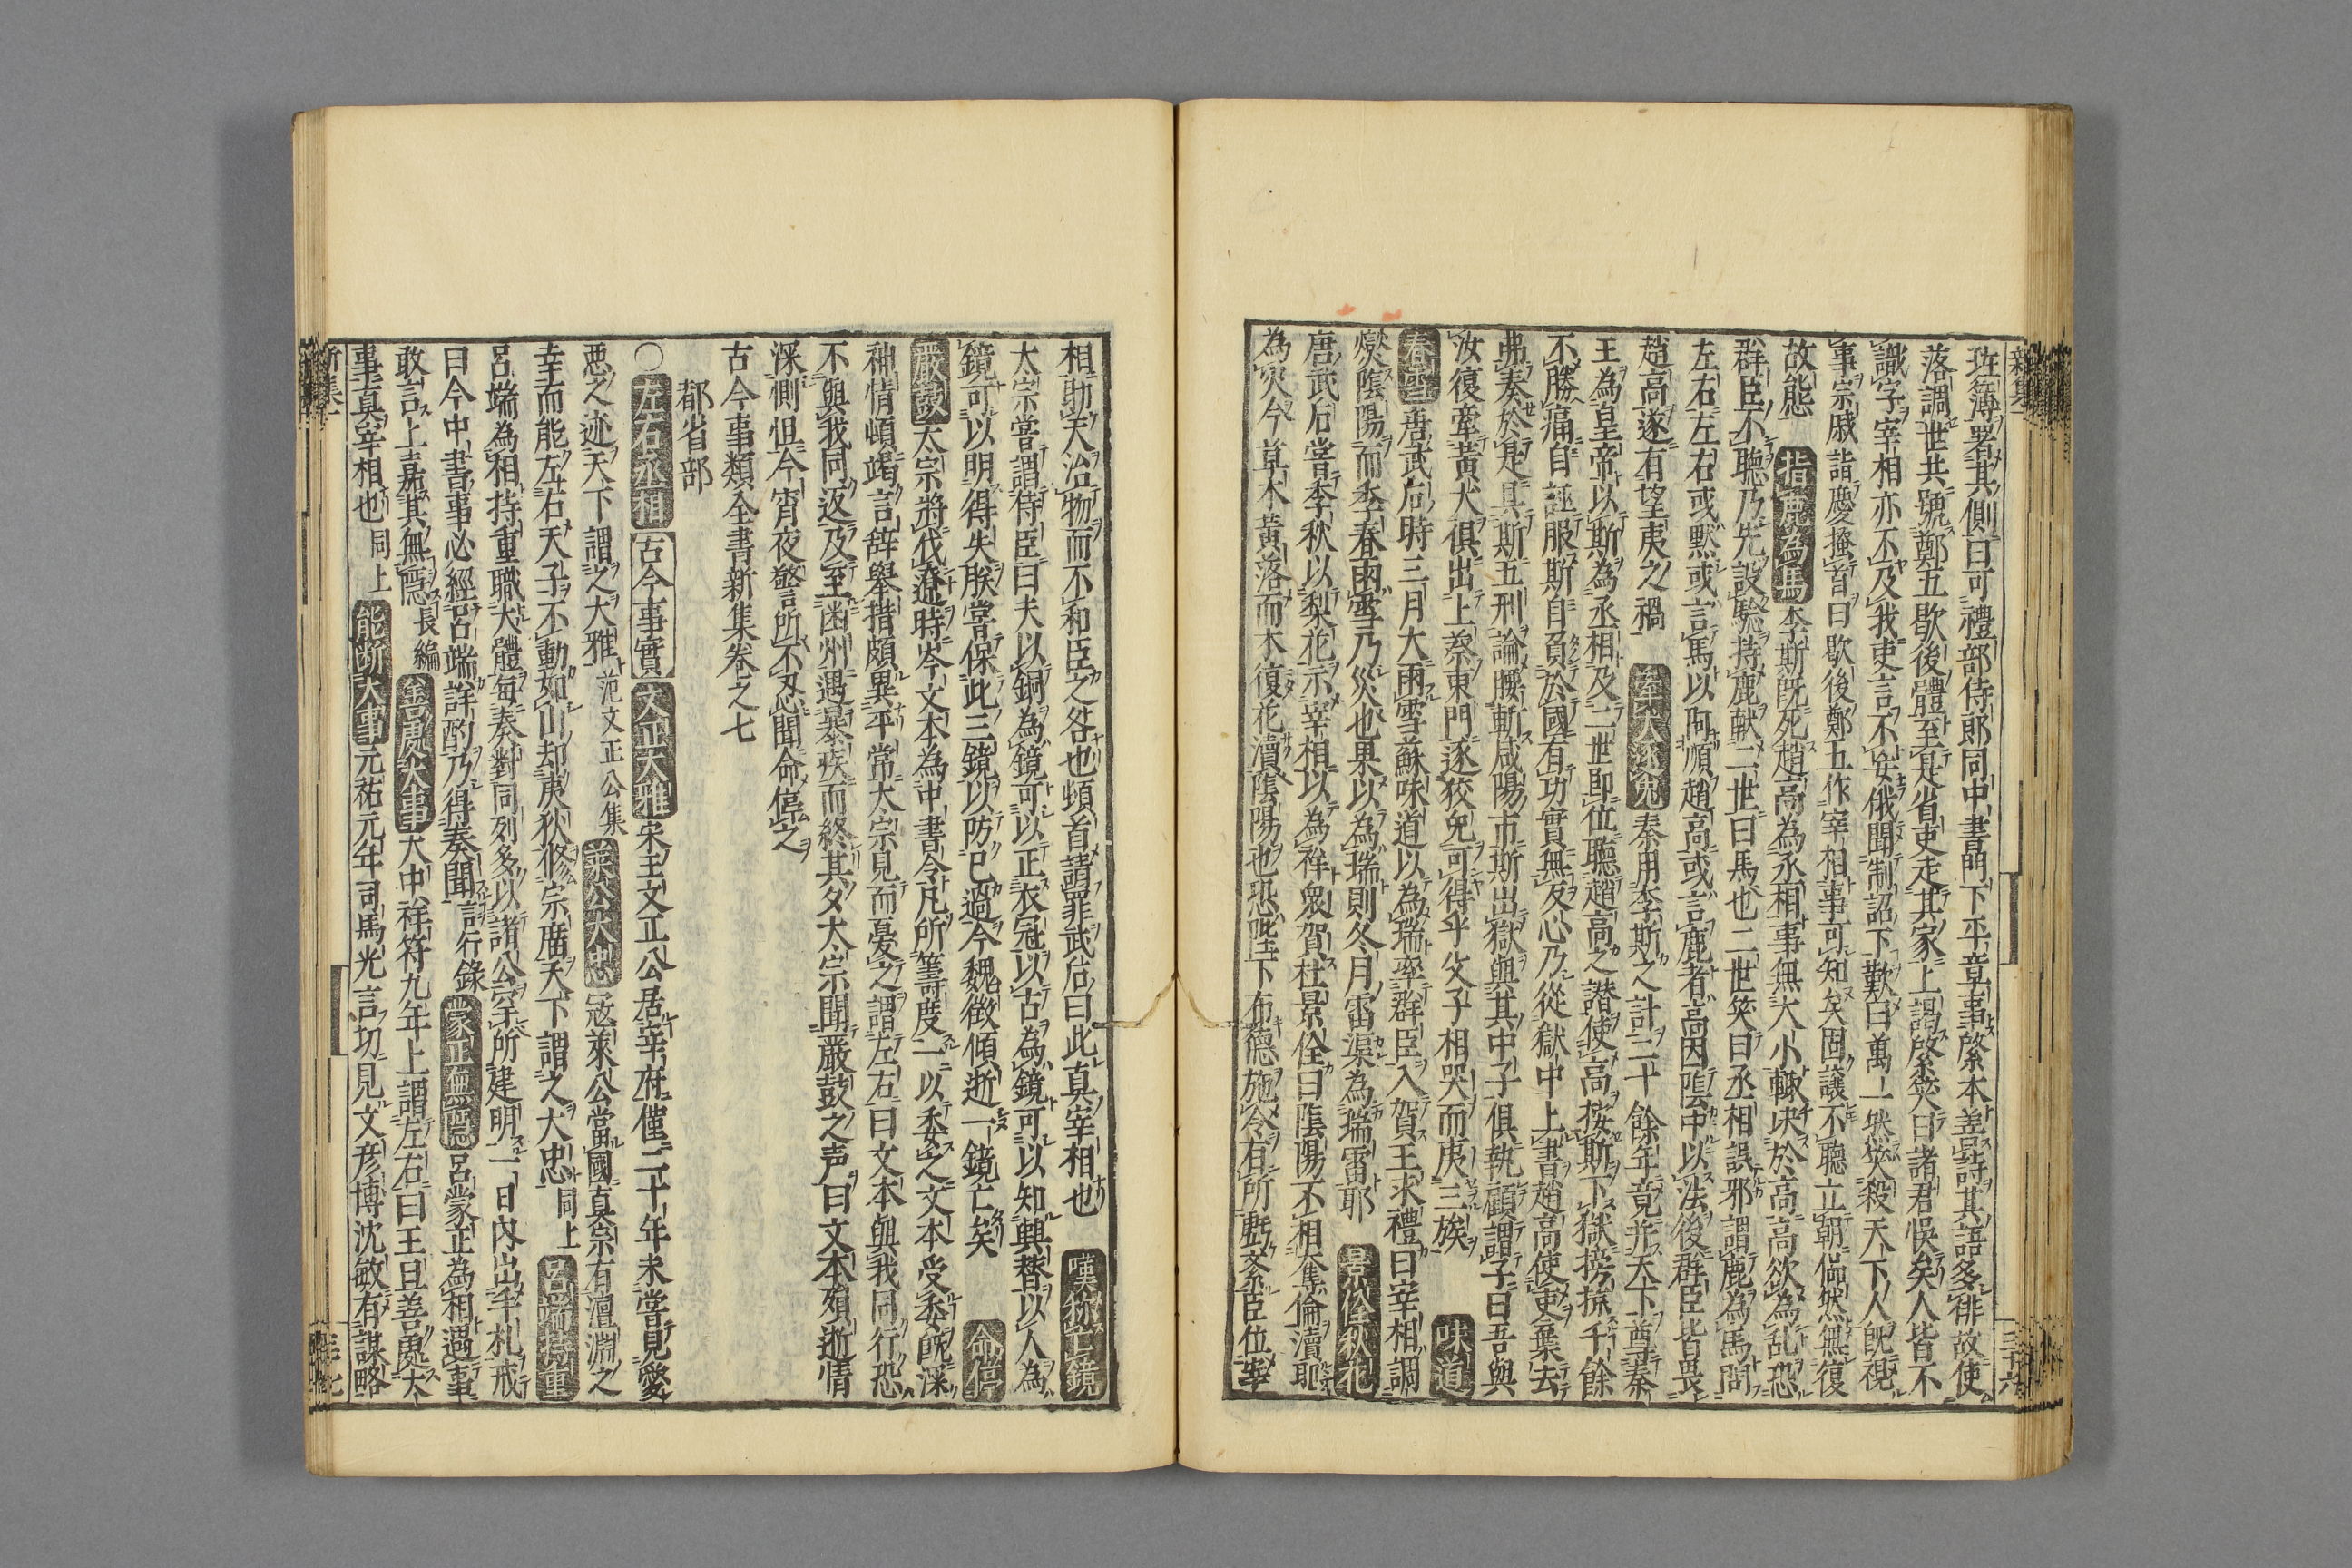 班簿署其側曰可禮部侍郎同中書門下平章事綮本善詩其語多俳故使
落調世共號鄭五歇後體至是省吏走其家上謁綮笑曰諸君悮矣人皆不
識字宰相亦不及我吏言不妄俄聞制詔下歎曰萬一然笑殺天下人既視
事宗戚詣慶搔首曰歇後鄭五作宰相事可知矣固讓不聽立朝偘然無復
故態 指鹿為馬 李斯既死趙高為丞相事無大小輙决於高高欲為乱恐
群臣不聽乃先設驗持鹿献二世曰馬也二世笑曰丞相誤邪謂鹿為馬問
左右左右或黙或言馬以阿順趙高或言鹿者高因隂中以法後群臣皆畏
趙高遂有望夷之禍 牽犬逐兎 秦用李斯之計二十餘年竟并天下尊秦
王為皇帝以斯為丞相及二世即位聽趙高之譖使高按斯下獄搒掠千餘
不勝痛自誣服斯自負於國有功實無反心乃從獄中上書趙高使吏棄去
弗奏於是具斯五刑論腰斬咸陽市斯出獄與其中子俱執顧謂子曰吾與
汝復牽黃犬俱出上蔡東門逐狡兎可得乎父子相哭而夷三族 味道
春雪 唐武后時三月大雨雪蘇味道以為瑞率群臣入賀王求禮曰宰相調
爕隂陽而季春雨雪乃災也果以為瑞則冬月雷渠為瑞雷耶 景佺秋花
唐武后嘗季秋以梨花示宰相以為祥衆賀杜景佺曰隂陽不相奪倫瀆即
為灾今草木黃落而木復花瀆隂陽也恐陛下布德施令有所虧紊臣位宰
相助天治物而不和臣之咎也頓首請罪武后曰此真宰相也 嘆称亡鏡
太宗嘗謂侍臣曰夫以銅為鏡可以正衣冠以古為鏡可以知興替以人為
鏡可以明得失朕嘗保此三鏡以防己過今魏徵傾逝一鏡亡矣 命停
嚴鼓 太宗将伐遼時岑文本為中書令凡所籌度一以委之文本受委既深
神情頓竭言辞舉措頗異平常太宗見而憂之謂左右曰文本與我同行恐
不與我同返及至幽州遇暴疾而終其夕太宗聞嚴鼓之声曰文本殞逝情
深惻怛今宵夜警所不忍聞命停之
古今事類全書新集卷之七
都省部
〇左右丞相 古今事實 文正大雅 宋王文正公居宰府僅二十年未嘗見愛
惡之迹天下謂之大雅 范文正公集 萊公大忠 冦萊公當國真宗有澶淵之
幸而能左右天子不動如山却夷狄修宗廟天下謂之大忠 同上 呂端持重
呂端為相持重職大體每奏對同列多以諸公罕所建明一日內出手札戒
曰今中書事必經呂端詳酌乃得奏聞 言行錄 蒙正無隱 呂蒙正為相遇事
敢言上嘉其無隱 長編 善處大事 大中祥符九年上謂左右曰王旦善處大
事真宰相也 同上 能断大事 元祐元年司馬光言切見文彦博沈敏有謀略